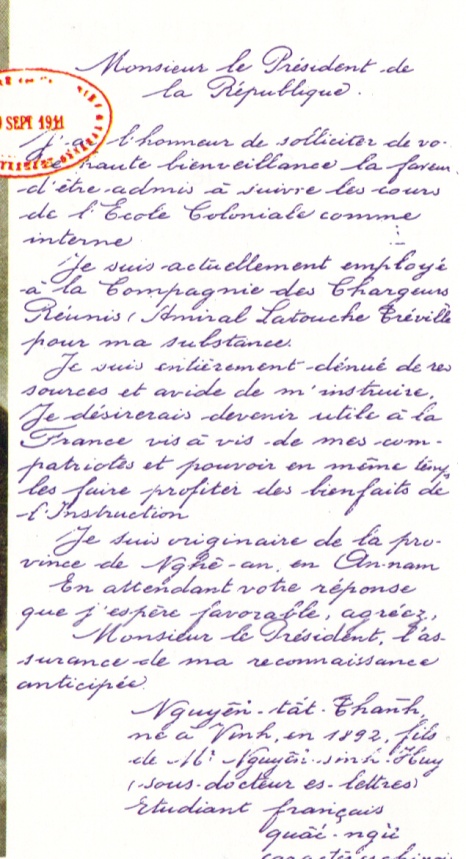 Monsieur le Président de
la République.
SEPT 1911
J'ai l'honneur de solliciter de vo-
tre haute bienveillance la faveur
d'être admis à suivre les cours
de l'Ecole Coloniale comme
interne
Je suis actuellement employé
à la Compagnie des Chargeurs
Réunis (Amiral Latouche Tréville
pour ma substance.
Je suis entièrement dénué de res
sources et avide de m'instruire.
Je désirerais devenir utile à la
France vis à vis de mes com-
patriotes et pouvoir en même temps
les faire profiter des bienfaits de
l'Instruction
Je suis originaire de la pro-
vince de Nghê-an, en An-nam
En attendant votre réponse
que j'espère favorable, agréez,
Monsieur le Président, l'as-
surance de ma reconnaissance
anticipée.
Nguyên-tât-Thanh,
né à Vinh, en 1892, fils
de Mr Nguyên-sinh-Huy
(sous-docteur es-lettres)
Etudiant français
quâi-ngù